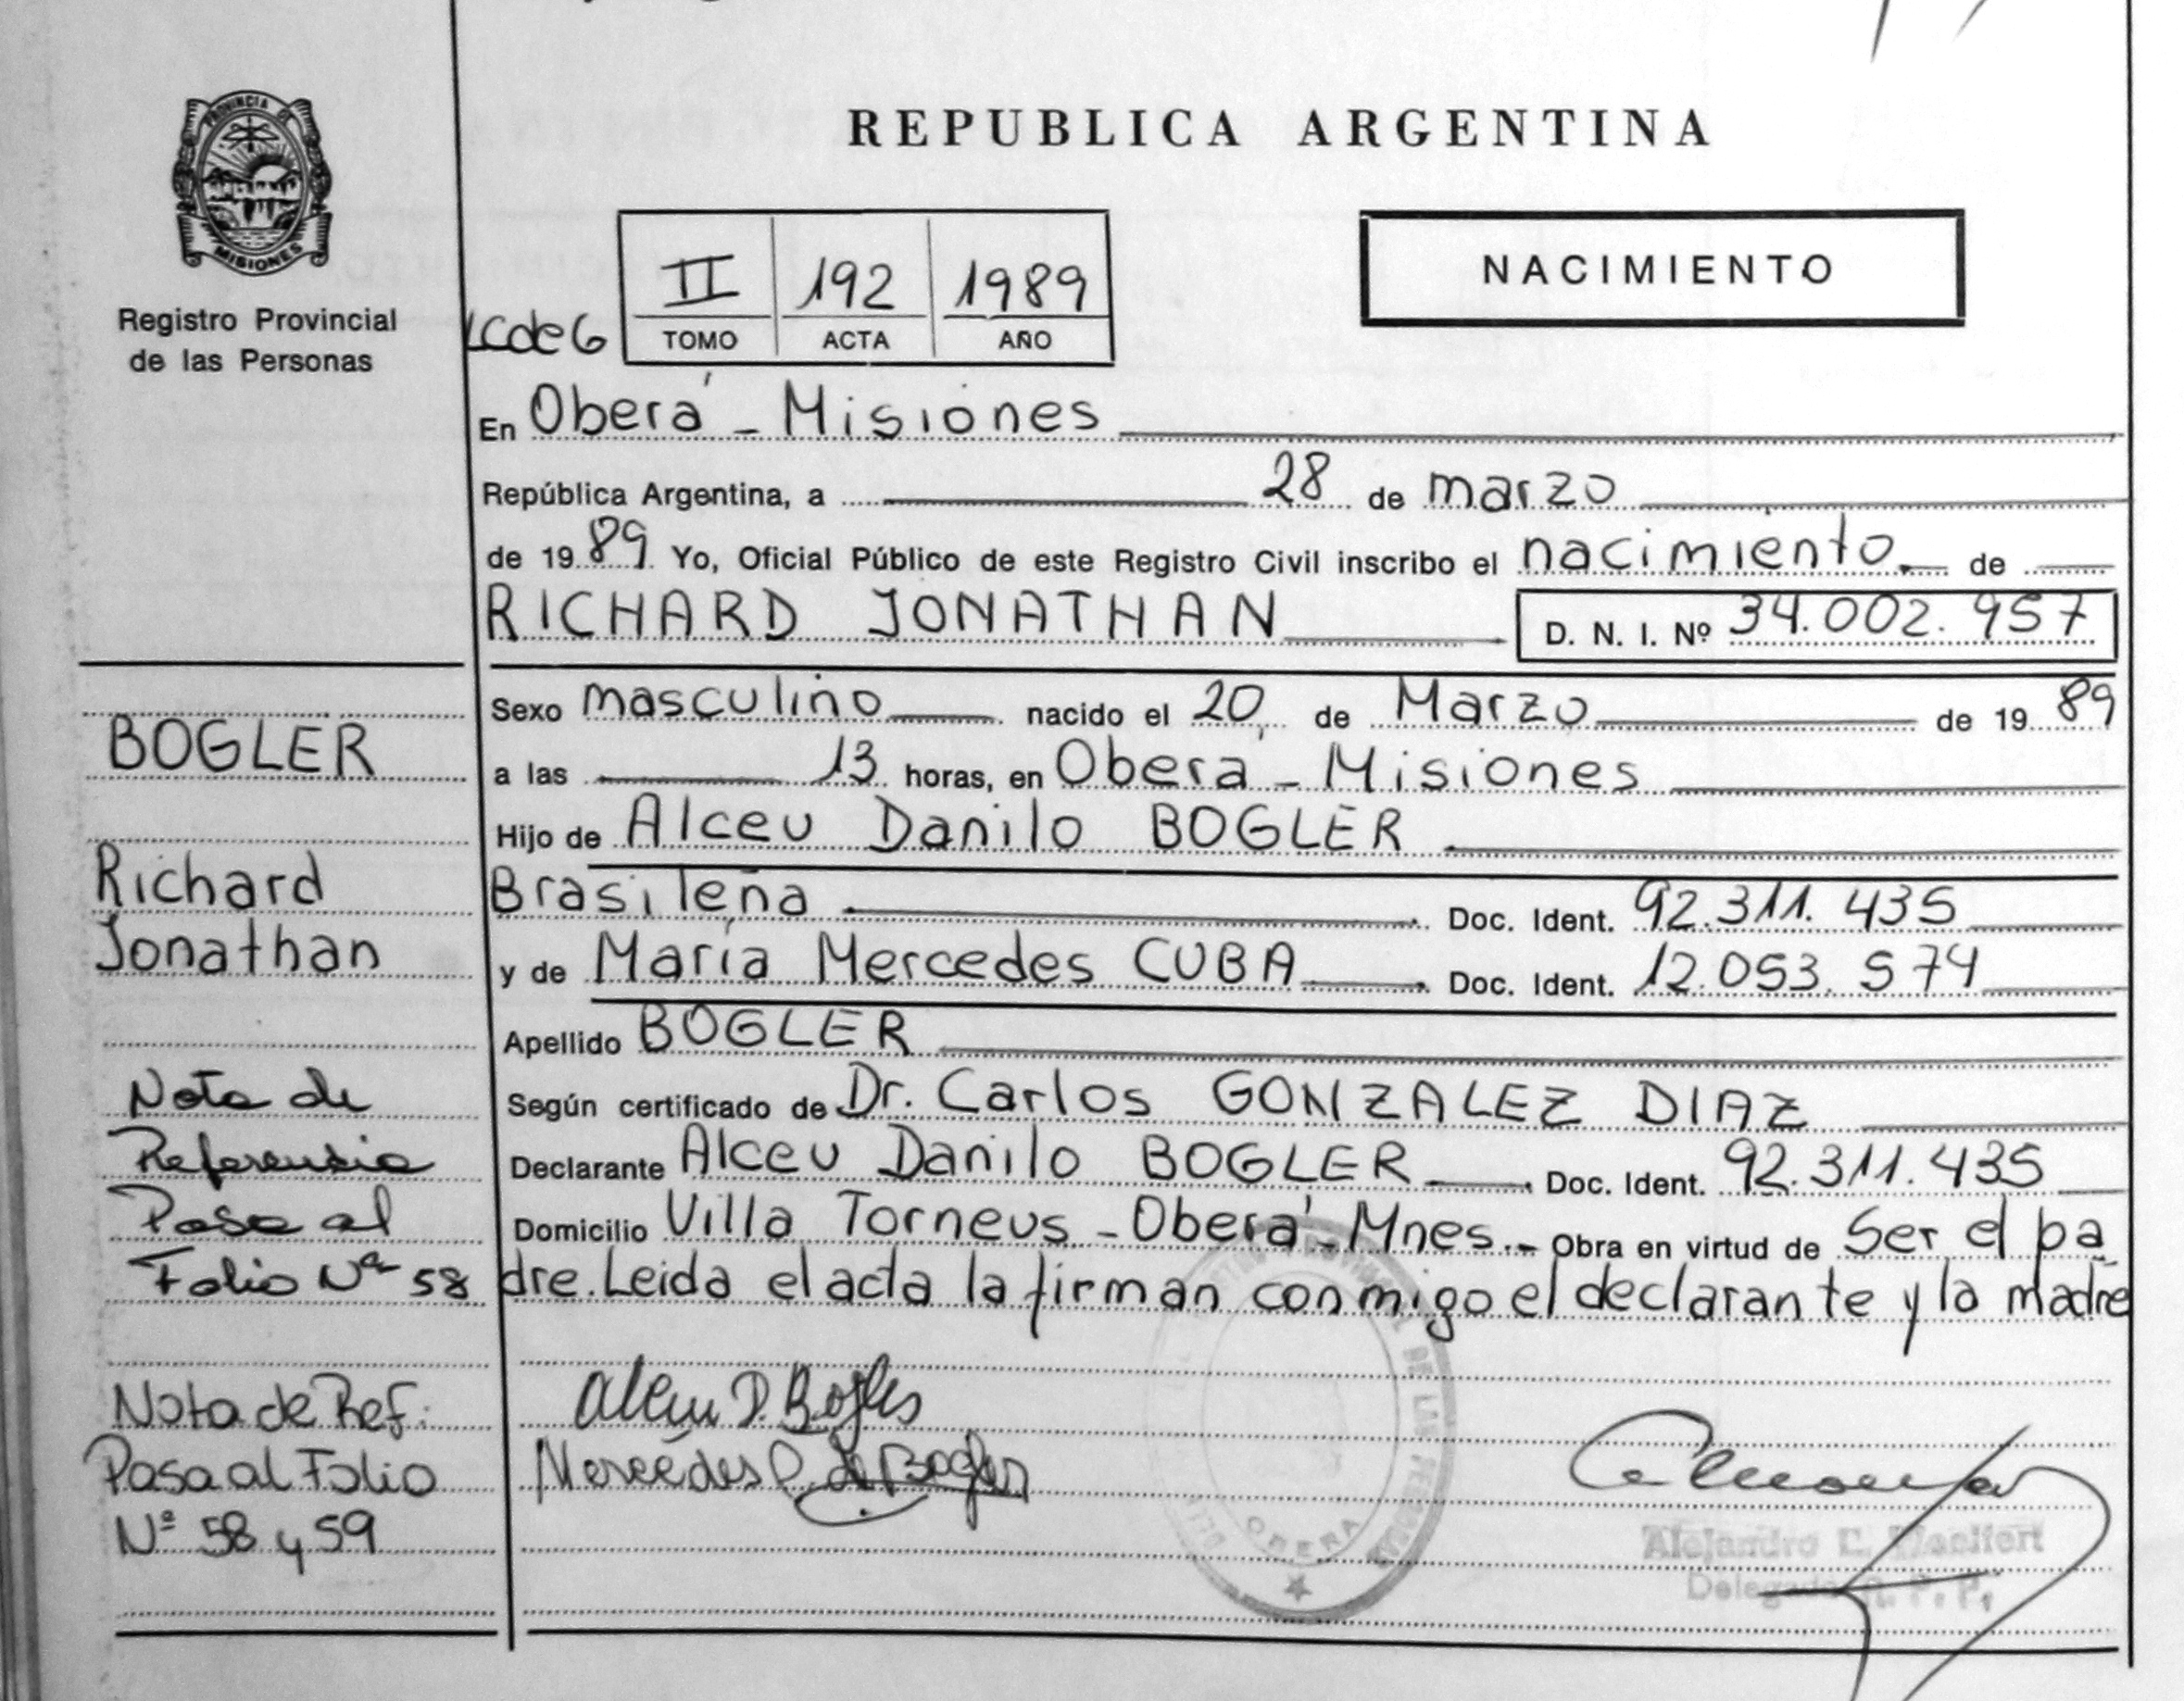 REPUBLICA ARGENTINA
PROVINCIA DE
MISIONES
Registro Provincial
de las Personas
NACIMIENTO
II 192 1989
TOMO ACTA AÑO
En Oberá - Misiones
República Argentina, a 28 de marzo
de 1989 Yo, Oficial Público de este Registro Civil inscribo el nacimiento de
RICHARD JONATHAN D. N. I. Nº 34.002.957
Sexo masculino nacido el 20 de Marzo de 1989
a las 13 horas, en Oberá - Misiones
Hijo de Alceu Danilo BOGLER
Brasileña Doc. Ident. 92.311.435
y de María Mercedes CUBA Doc. Ident. 12.053.574
Apellido BOGLER
Según certificado de Dr. Carlos GONZALEZ DIAZ
Declarante Alceu Danilo BOGLER Doc. Ident. 92.311.435
Domicilio Villa Torneus - Oberá - Mnes. Obra en virtud de Ser el pa
dre. Leida el acta la firman conmigo el declarante y la madre
BOGLER
Richard
Jonathan
Nota de
Referencia
Pasa al
Folio Nº 58
Nota de Ref:
Pasa al Folio
Nº 58 y 59
Alceu D. Bogler
Mercedes C. de Bogler
OBERA
Alejandro E.
Delegado R. P. P.